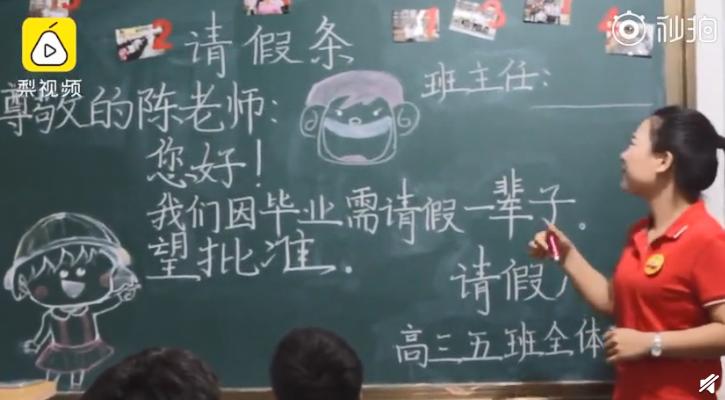 梨视频
秒拍
请假条
班主任:
尊敬的陈老师:
您好!
我们因毕业需请假一辈子。
望批准.
请假
高三五班全体